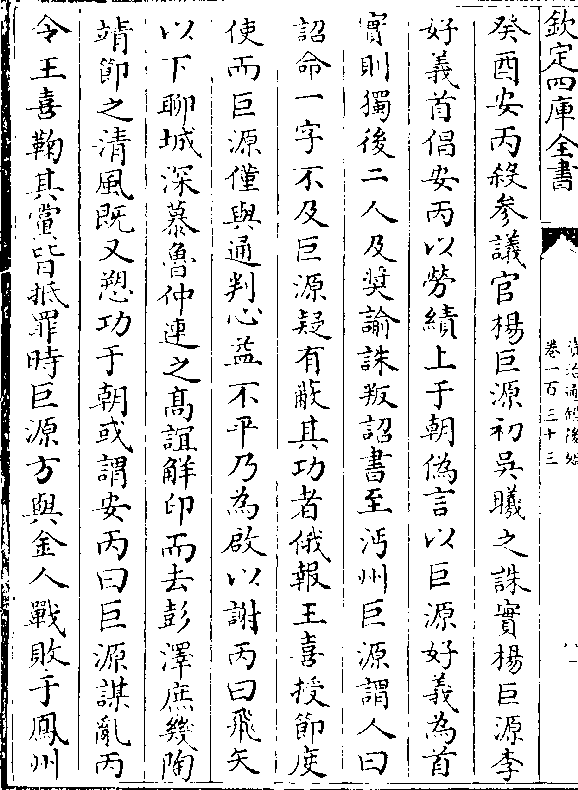 欽定四庫全書
資治通鑑後編
卷一百三十三
癸酉安丙殺參議官楊巨源初吳曦之誅實楊巨源李
好義首倡安丙以勞績上于朝偽言以巨源好義為首
實則獨後二人及奨諭誅叛詔書至沔州巨源謂人曰
詔命一字不及巨源疑有蔽其功者俄報王喜授節度
使而巨源僅與通判心益不平乃為啟以謝丙曰飛矢
以下聊城深慕魯仲連之髙誼解印而去彭澤庶幾陶
靖節之清風既又愬功于朝或謂安丙曰巨源謀亂丙
令王喜鞫其黨皆抵罪時巨源方與金人戰敗于鳳州